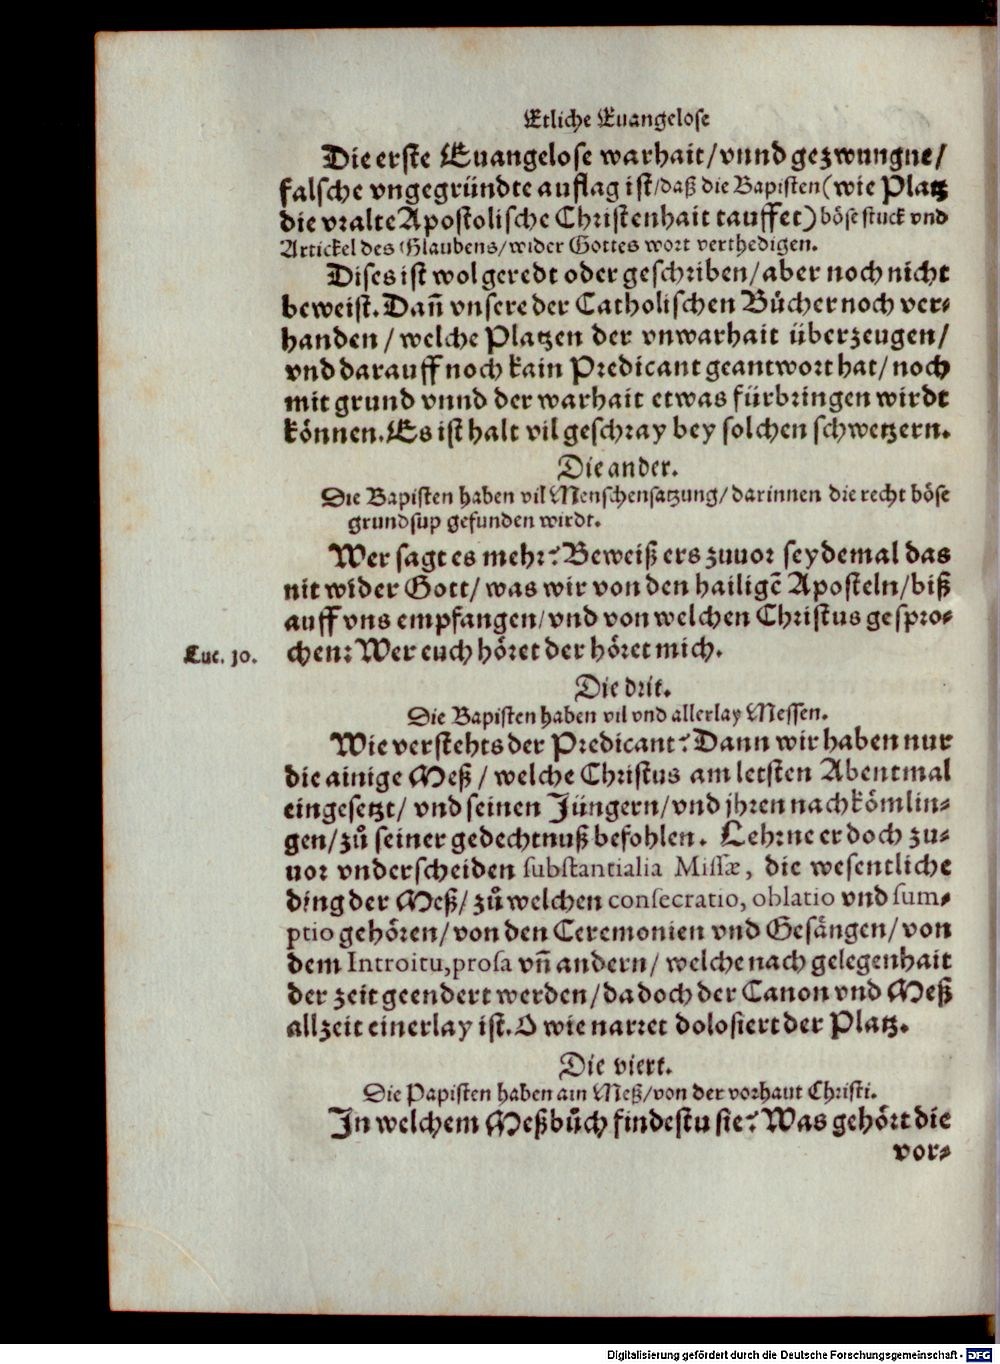 Etliche Euangelose
Die erste Euangelose warhait/vnnd gezwungne/
falsche vngegründte aufflag ist/daß die Bapisten(wie Platz
die vralte Apostolische Christenhait tauffet) böse stuck vnd
Artickel des Glaubens/wider Gottes wort verthedigen.
Dises ist wol geredt oder geschriben/aber noch nicht
beweist. Dañ vnsere der Catholischen Bücher noch ver-
handen/welche Platzen der vnwarhait überzeugen/
vnd darauff noch kain Predicant geantwort hat/noch
mit grund vnnd der warhait etwas fürbringen wirdt
können. Es ist halt vil geschray bey solchen schwetzern.
Die ander.
Die Bapisten haben vil Menschensatzung/darinnen die recht böse
grundsup gefunden wirdt.
Wer sagt es mehr? Beweiß ers zuuor seydemal das
nit wider Gott/was wir von den hailigē Aposteln/biß
auff vns empfangen/vnd von welchen Christus gespro-
chen: Wer euch höret der höret mich.
Luc. 10.
Die drit.
Die Bapisten haben vil vnd allerlay Messen.
Wie verstehts der Predicant? Dann wir haben nur
die ainige Meß/welche Christus am letsten Abentmal
eingesetzt/vnd seinen Jüngern/vnd jhren nachkömlin-
gen/zů seiner gedechtnuß befohlen. Lehrne er doch zu-
uor vnderscheiden substantialia Missæ, die wesentliche
ding der Meß/zů welchen consecratio, oblatio vnd sum-
ptio gehören/von den Ceremonien vnd Gesängen/von
dem Introitu, prosa vñ andern/welche nach gelegenhait
der zeit geendert werden/da doch der Canon vnd Meß
allzeit einerlay ist. O wie narret dolosiert der Platz.
Die viert.
Die Papisten haben ain Meß/von der vorhaut Christi.
In welchem Meßbůch findestu sie? Was gehört die
vor-
Digitalisierung gefördert durch die Deutsche Forschungsgemeinschaft - DFG